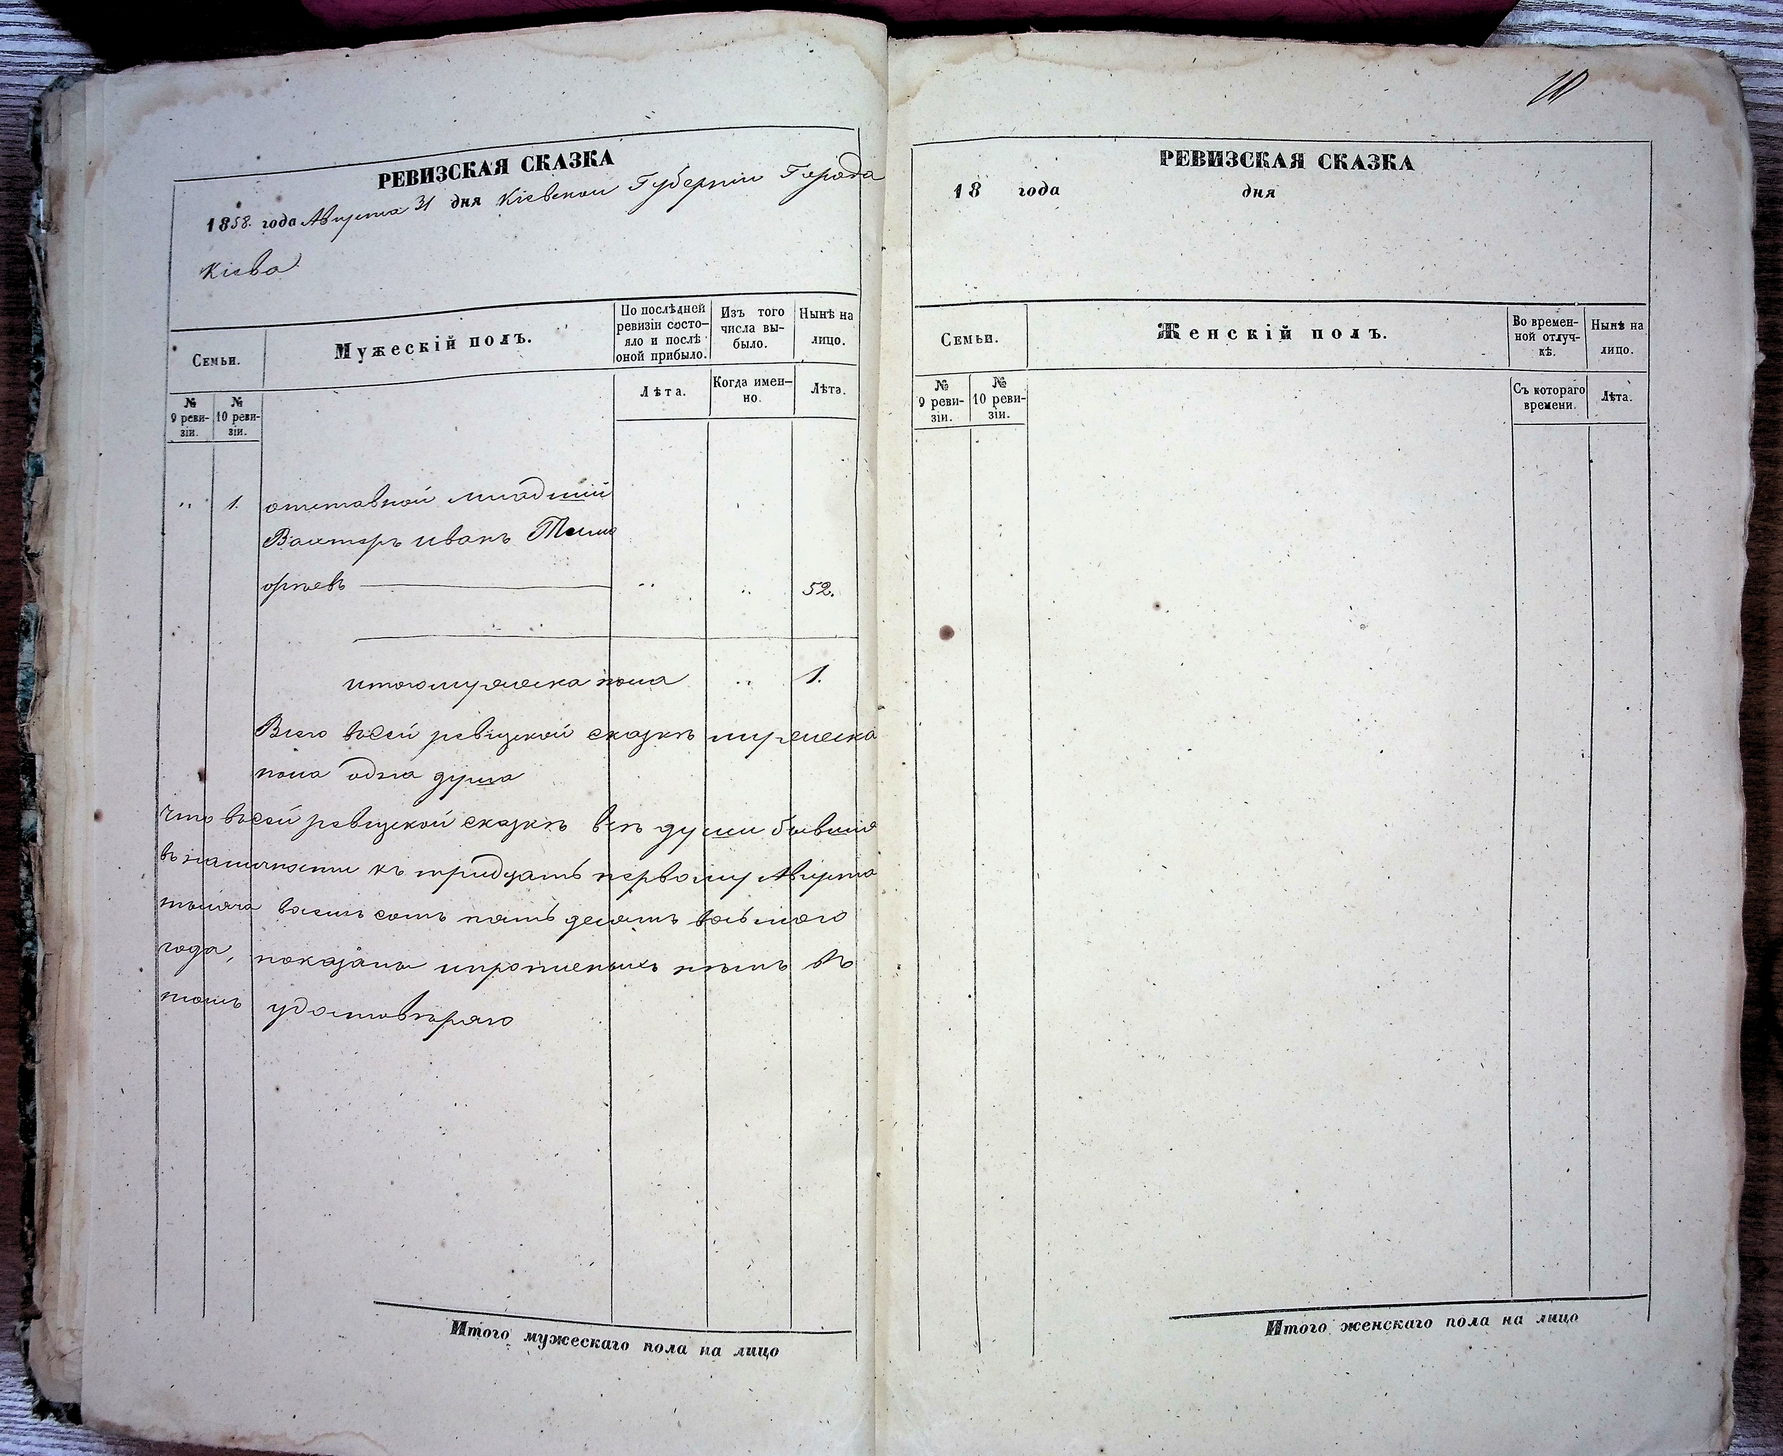 РЕВИЗСКАЯ СКАЗКА
1858. года Августа 31 дня Кіевской Губерніи Города
Кіева
Семьи.
Мужескій полъ.
По послѣдней ревизіи состо-
яло и послѣ
оной прибыло.
Изъ того
числа вы-
было.
Нынѣ на
лицо.
№
9 реви-
зіи.
№
10 реви-
зіи.
Лѣта.
Когда имен-
но.
Лѣта.
" 1. отставной младшій
Вахтеръ иванъ
" " 52.
итого мужеска пола " 1.
Всего всей ревизкой сказкѣ мужеска
пола одна душа
Что всей ревизкой сказкѣ всѣ души бывшія
въ наличности къ тридцать первому Августа
тысяча восемь сотъ пять десятъ восьмого
года, показаны нѣтъ въ
томъ удостовѣряю
Итого мужескаго пола на лицо
10
РЕВИЗСКАЯ СКАЗКА
18 года дня
Семьи.
Женскій полъ.
Во времен-
ной отлуч-
кѣ.
Нынѣ на
лицо.
№
9 реви-
зіи.
№
10 реви-
зіи.
Съ котораго
времени.
Лѣта.
Итого женскаго пола на лицо